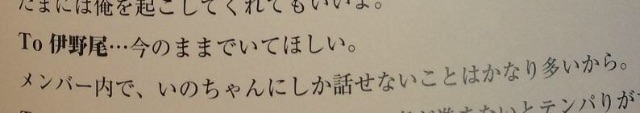 たまには俺を起こしてくれてもいいよ。
To 伊野尾…今のままでいてほしい。
メンバー内で、いのちゃんにしか話せないことはかなり多いから。
ないとテンパりが